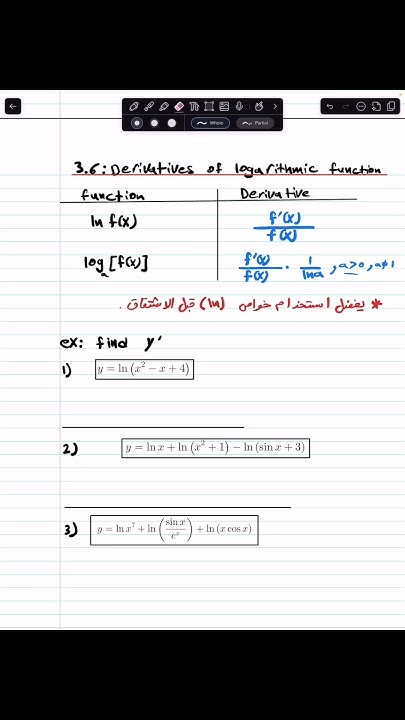 Whole Partial
3.6: Derivatives of logarithmic function
function Derivative
ln f(x) f'(x) / f(x)
log_a [f(x)] f'(x) / f(x) · 1 / ln a , a>0, a≠1
* يفضل استخدام خواص (ln) قبل الاشتقاق.
ex: find y'
1) y = ln (x² − x + 4)
2) y = ln x + ln (x² + 1) − ln (sin x + 3)
3) y = ln x⁷ + ln (sin x / eˣ) + ln (x cos x)